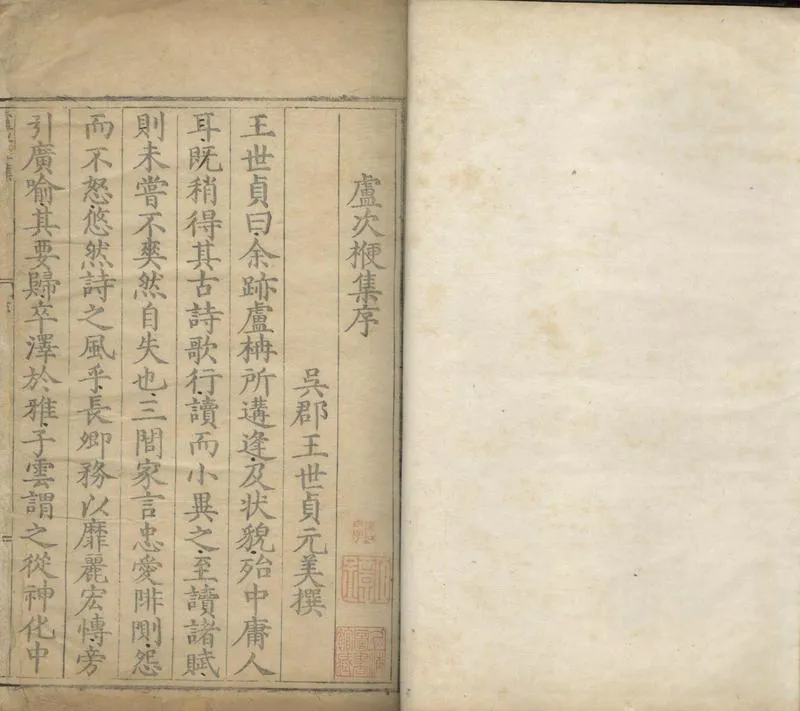 盧次楩集序
吳郡王世貞元美撰
王世貞曰余跡盧柟所遘逢及状貌殆中庸人
耳既稍得其古詩歌行讀而小異之至讀諸賦
則未嘗不爽然自失也三閭家言忠愛悱惻怨
而不怒悠然詩之風乎長卿務以靡麗宏博旁
引廣喻其要歸卒澤於雅子雲謂之從神化中